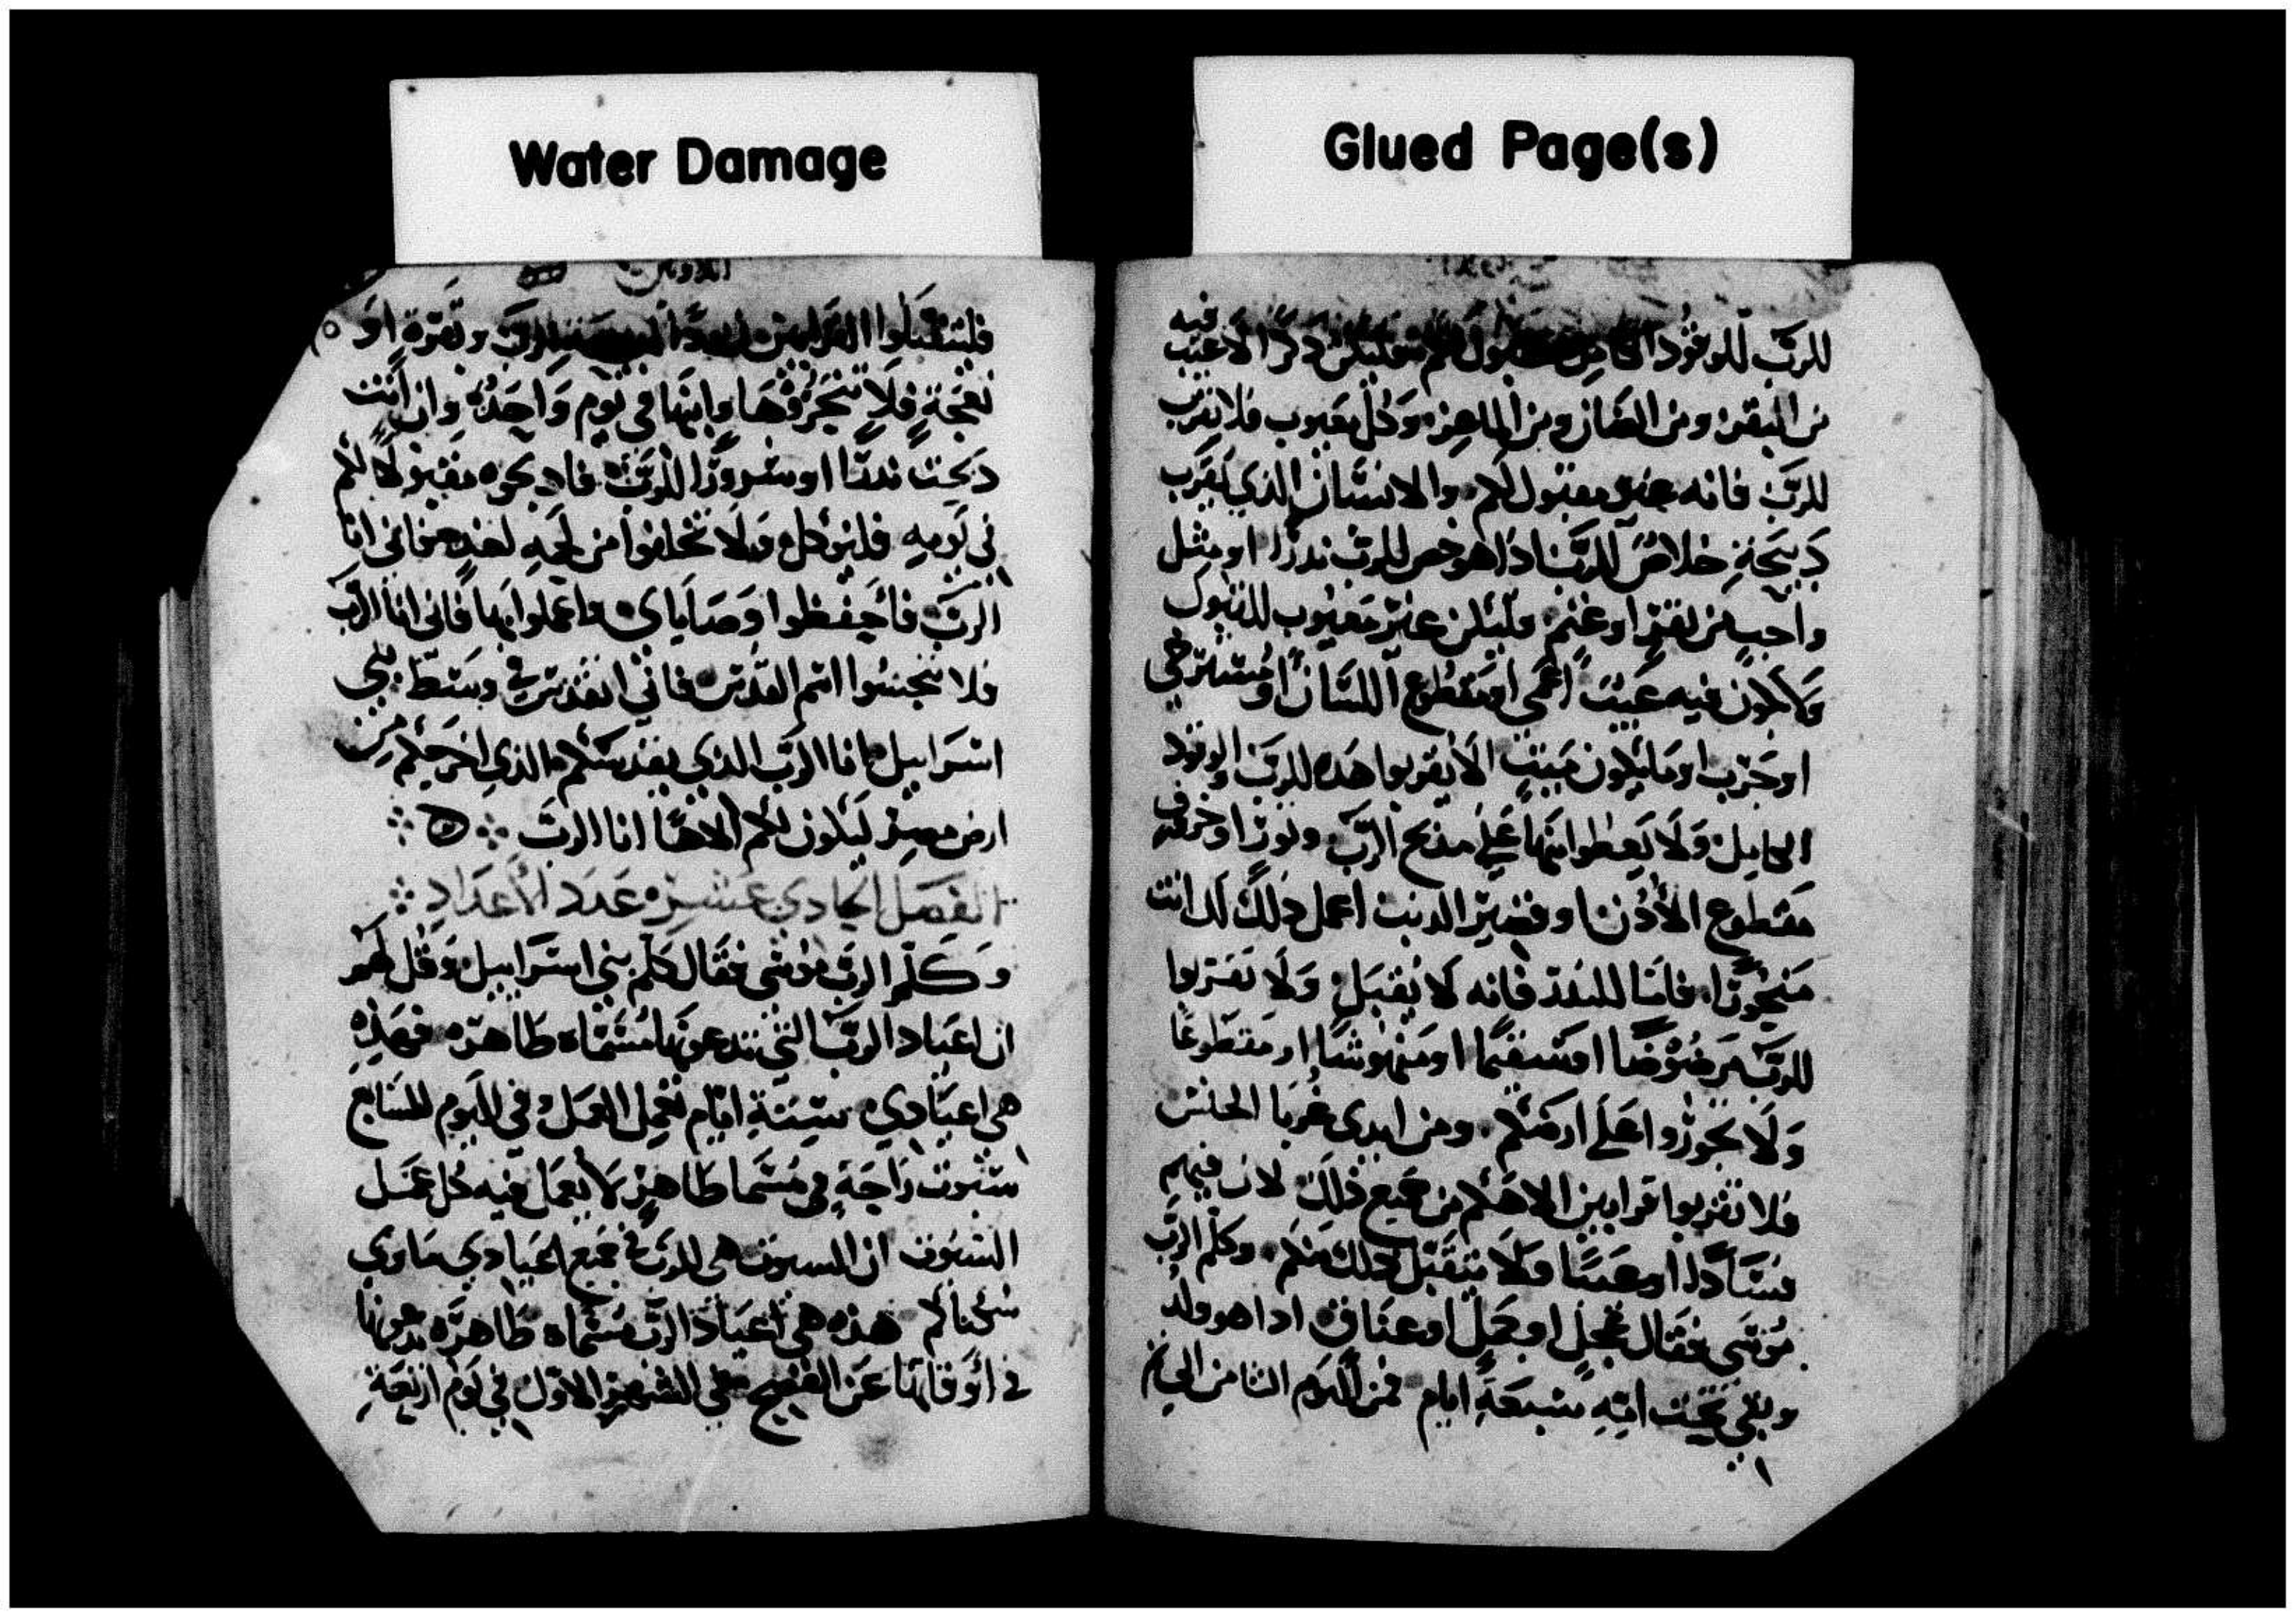 Water Damage
Glued Page(s)
للرب للوقود فليكن ذكرا لا عيب فيه
من البقر ومن الضان ومن الماعز وكل معيوب فلا تقرب
للرب فانه غير مقبول لكم والانسان الذي يقرب
دبيحة خلاص للرب اداهو خص للرب ندرا او مثل
واجب من بقر او غنم فليكن غير معيوب للقبول
ولا يكون فيه عيب اعمي او مقطوع اللسان او مسترخي
او جرب او ما يكون ميت لا يقربوا هده للرب الوقود
ولا يعطوا منها علي مدبح الرب وثورا او خروف
مقطوع الأدن او قصير الدنب اعمل دلك لك انت
فاما للندر فانه لا يقبل ولا تقربوا
للرب مرضوضا او منهوشا او مقطوعا
ولا تجوزوا علي ارضكم ومن ايدي غربا الجنس
فلا تقربوا قرابين الاهكم من جميع ذلك لان فيهم
فسادا وعيبا ولا يتقبل دلك منكم وكلم الرب
موسي فقال عجل او حمل او عناق اداهو ولد
ويبقي تحت امه سبعة ايام فمن اليوم الثامن الي
فلتتقبلوا القرابين للرب وبقرة او
نعجة فلا تنحروها وابنها في يوم واحد وان انت
دبحت ندرا او سرورا للرب فادبحوه مقبولا لكم
في يومه فليوكل ولا تخلفوا من لحمه لغد فاني انا
الرب فأحفظوا وصاياي واعملوا بها فاني انا الرب
فلا تنجسوا اسم القدس فاني اتقدس في وسط بني
اسراييل انا الرب الدي يقدسكم والذي اخرجكم من
ارض مصر ليكون لكم الاها انا الرب
الفصل الحادي عشر عدد الأعداد
وكلم الرب موسي فقال كلم بني اسراييل وقل لهم
ان اعياد الرب التي تدعونها مسماه طاهره فهذه
هي اعيادي ستة ايام تعمل العمل وفي اليوم السابع
سبوت راحة هي مسما طاهر لا يعمل فيه كل عمل
السبوت ان السبوت هي للرب في جميع
هذه هي اعياد الرب مسماه طاهره تدعونها
في أوقاتها عن الفصح في الشهر الاول في يوم اربعة